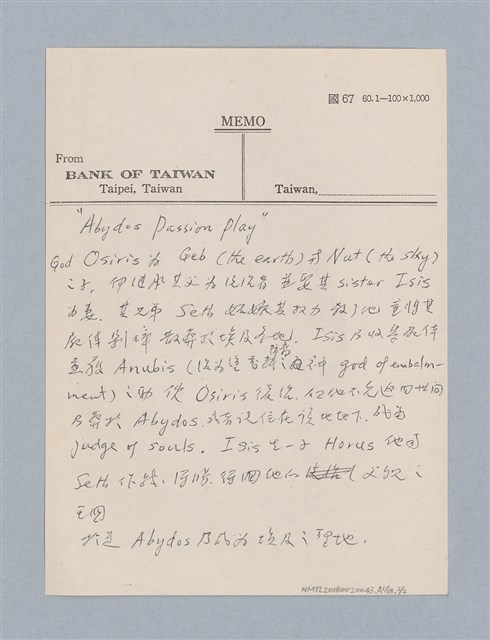 國 67 60.1—100×1,000
MEMO
From
BANK OF TAIWAN
Taipei, Taiwan
Taiwan,
"Abydos Passion Play"
God Osiris 為 Geb (the earth) 和 Nut (the sky)
之子. 伊繼承其父為統治者 並娶其 sister Isis
為妻. 其兄弟 Seth 妒嫉其权力 殺了他 並將其
屍体割碎 散葬於埃及各地. Isis 乃收集屍体
並藉 Anubis god of embalm-
ment) 之助 使 Osiris 復活. 但他不先返回世間
乃葬於 Abydos 或者說住在該地地下. 成為
judge of souls. Isis 生一子 Horus 他與
Seth 作戰. 得勝. 得回他的 父親之
王國
於是 Abydos 乃成為埃及之聖地.
NMTL20180020043